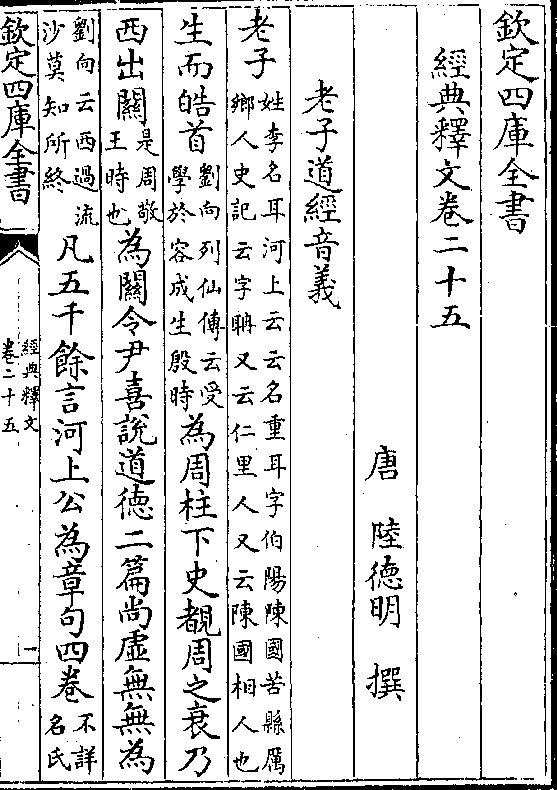 欽定四庫全書
經典釋文卷二十五
唐 陸德明 撰
老子道經音義
老子姓李名耳河上云云名重耳字伯陽陳國苦縣厲鄉人史記云字聃又云仁里人又云陳國相人也
生而皓首劉向列仙傳云受學於容成生殷時為周柱下史覩周之衰乃
西出關是周敬王時也為關令尹喜說道德二篇尚虛無無為
劉向云西過流沙莫知所終凡五千餘言河上公為章句四卷不詳名氏
欽定四庫全書
經典釋文
卷二十五
一